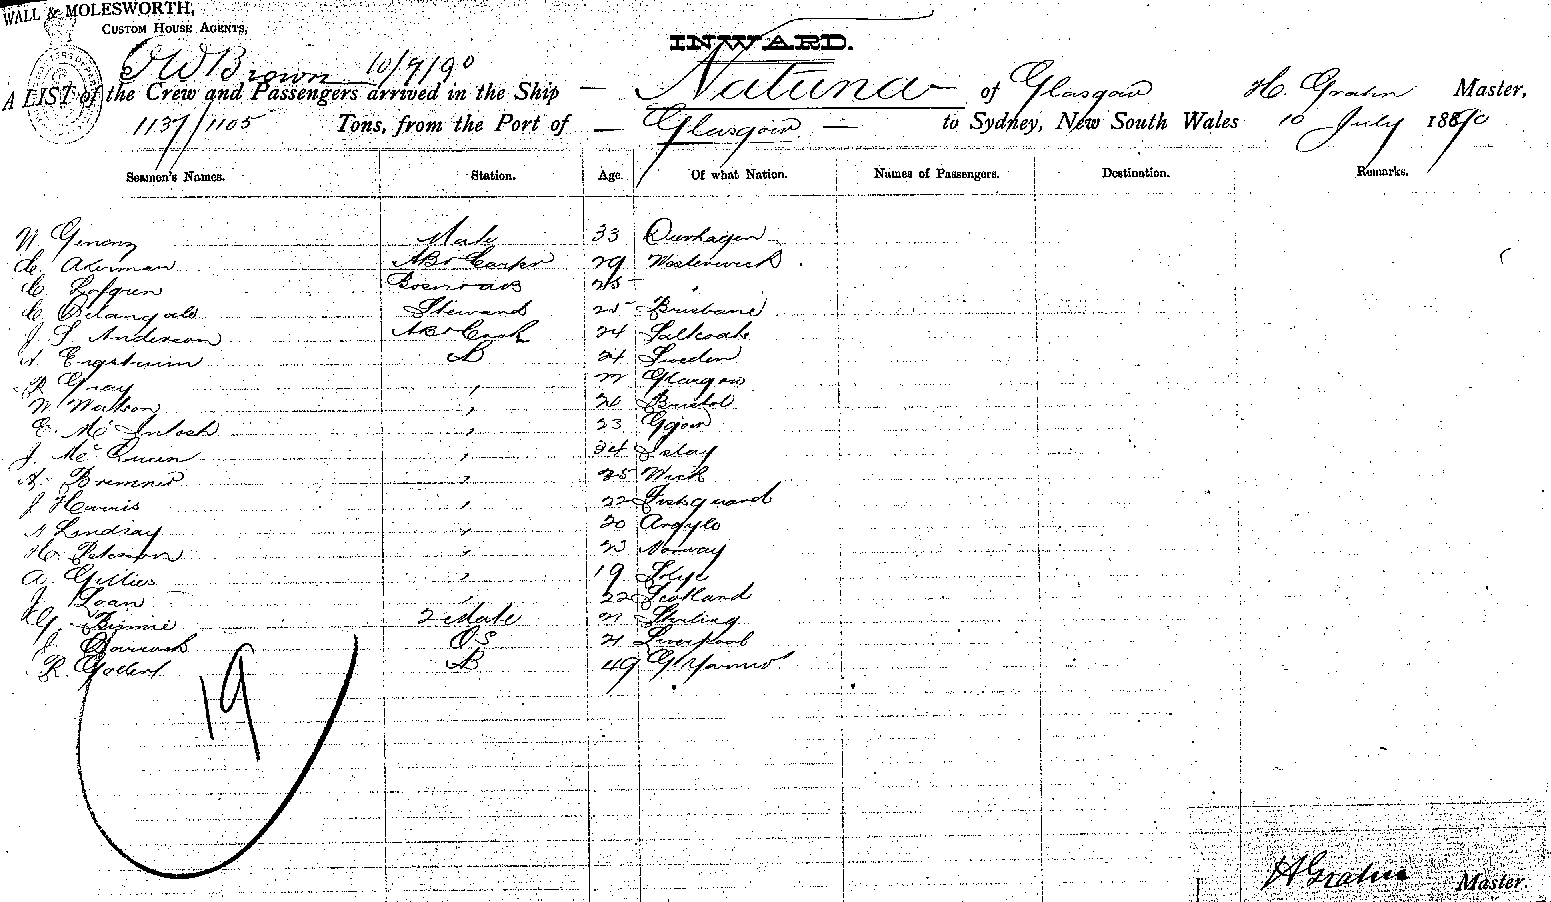 WALL & MOLESWORTH,
CUSTOM HOUSE AGENTS,
INWARD.
Brown 10/7/90
A LIST of the Crew and Passengers arrived in the Ship — Natuna — of Glasgow H. Grahn Master,
1137/1105 Tons, from the Port of — Glasgow — to Sydney, New South Wales 10 July 1890
Seamen's Names. Station. Age. Of what Nation. Names of Passengers. Destination. Remarks.
Mate 33
C. Akerman AB & Carptr 29 Westerwick
C. Lofgren 25
C. Steward 25 Brisbane
J. S. Anderson AB & Cook 24 Saltcoats
AB 24 Sweden
R Gray " Glasgow
W Watson " 26 Bristol
E. McIntosh " 23 Ggow
J. McQueen " 34 Islay
A. Bremner " 25 Wick
J Harris " 22 Fishguard
Lindsay " 20 Argyle
H. Peterson " 23 Norway
A. Gillies " 19 Skye
J. Loan " 22 Scotland
G. Binnie 2d Mate 21 Sterling
J. OS 21 Liverpool
R. AB 49
19
H Grahn Master.